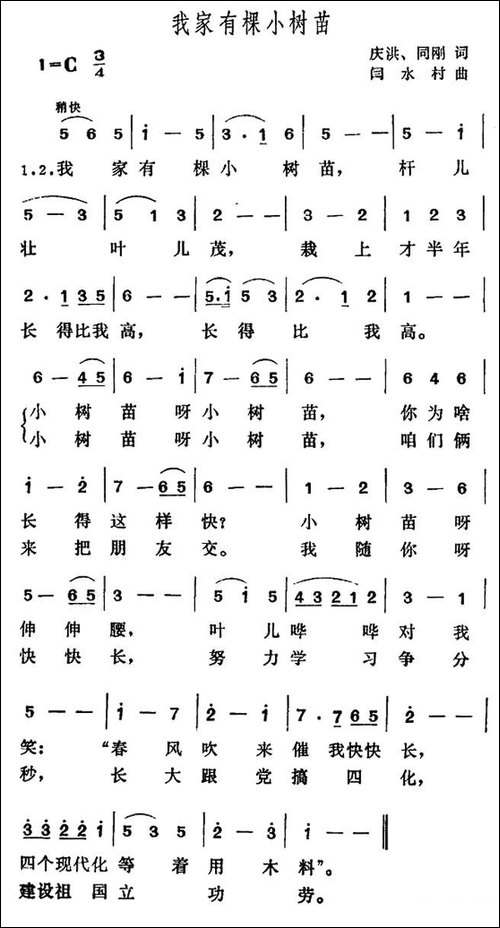 我家有棵小树苗
1=C 3/4
庆洪、同刚 词
闫水村 曲
稍快
5 6 5 | i — 5 | 3 · i 6 | 5 — — | 5 — i |
1.2.我 家有 棵小 树苗， 杆儿
5 — 3 | 5 1 3 | 2 — — | 3 — 2 | 1 2 3 |
壮 叶儿茂， 栽上才半年
2 · 1 3 5 | 6 — — | 5 · i 5 3 | 2 · 1 2 | 1 — — |
长得比我高， 长得比我高。
6 — 4 5 | 6 — i | 7 — 6 5 | 3 — — | 6 4 6 |
小树苗呀小树苗， 你为啥
小树苗呀小树苗， 咱们俩
i — 2 | 7 — 6 5 | 6 — — | 1 — 2 | 3 — 6 |
长得这样快？ 小树苗呀
来把朋友交。 我随你呀
5 — 6 5 | 3 — — | 5 i 5 | 4 3 2 1 2 | 3 — 1 |
伸伸腰， 叶儿哗哗对我
快快长， 努力学习争分
5 — — | i — 7 | 2 — i | 7 · 7 6 5 | 2 — — |
笑：“春风吹来催我快快长，
秒， 长大跟党搞四化，
3 3 2 2 i | 5 3 5 | 2 — 3 | i — — ‖
四个现代化等着用木料”。
建设祖国立功劳。